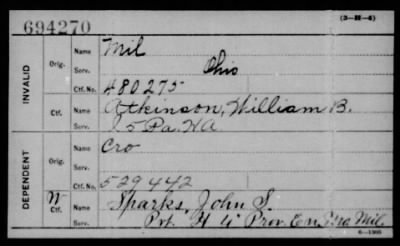 694270
(3—H—6)
INVALID
Orig.
Name Mil
Serv. Ohio
Ctf. No. 480275
Ctf.
Name Atkinson, William B.
Serv. 5 Pa. HA
DEPENDENT
Orig.
Name Cro
Serv.
Ctf. No. 529442
W
Ctf.
Name Sparks, John S.
Serv. Pvt. H 4 Prov. En. Mil.
6—1305